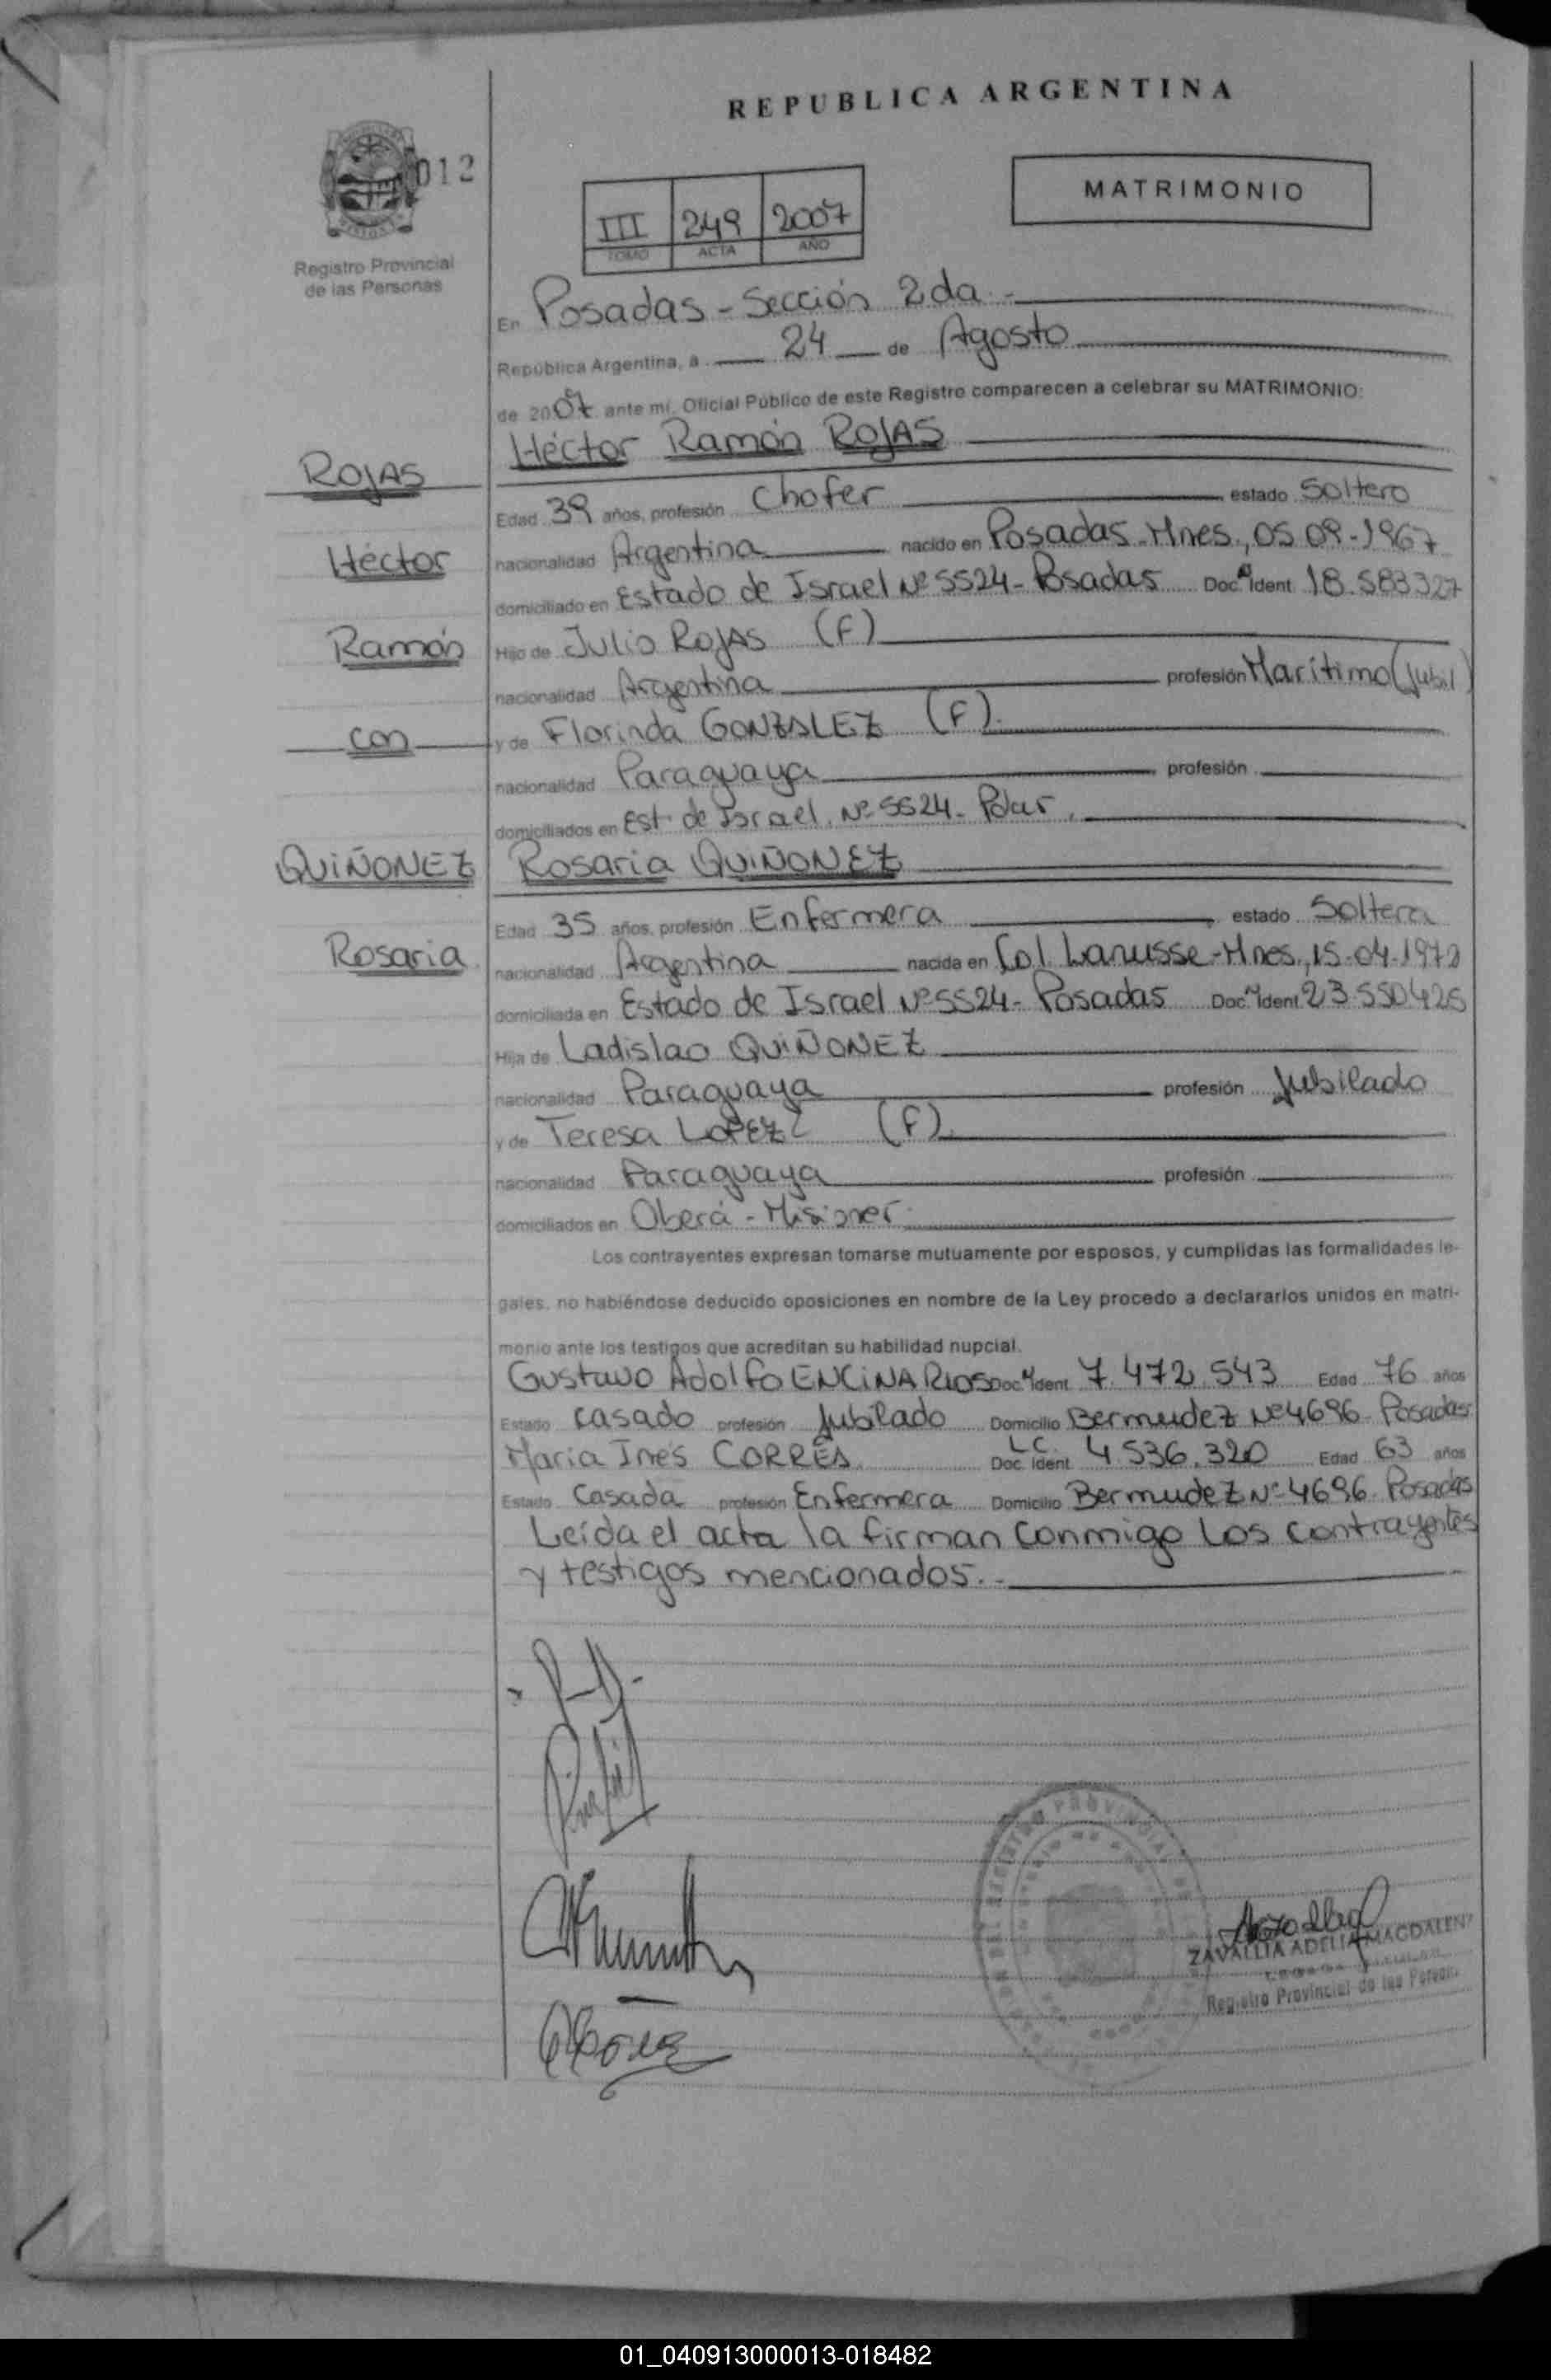 REPUBLICA ARGENTINA
012
MATRIMONIO
III 249 2007
TOMO ACTA AÑO
Registro Provincial
de las Personas
En Posadas - Sección 2da.-
República Argentina, a 24 de Agosto
de 2007 ante mí, Oficial Público de este Registro comparecen a celebrar su MATRIMONIO:
Héctor Ramón ROJAS
ROJAS
Edad 39 años, profesión Chofer estado Soltero
Héctor
nacionalidad Argentina nacido en Posadas-Mnes., 05.09.1967
domiciliado en Estado de Israel Nº 5524- Posadas Doc. Ident. 18.583327
Ramón
Hijo de Julio ROJAS (F)
nacionalidad Argentina profesión Marítimo (Jubil)
con
y de Florinda GONZALEZ (F).
nacionalidad Paraguaya profesión
domiciliados en Est. de Israel. Nº 5524-
QUIÑONEZ
Rosaria QUIÑONEZ
Edad 35 años, profesión Enfermera estado Soltera
Rosaria
nacionalidad Argentina nacida en Col. Lanusse-Mnes., 15-04-1972
domiciliada en Estado de Israel Nº 5524- Posadas Doc. Ident. 23.550425
Hija de Ladislao QUIÑONEZ
nacionalidad Paraguaya profesión Jubilado
y de Teresa LOPEZ (F).
nacionalidad Paraguaya profesión
domiciliados en Oberá - Misiones
Los contrayentes expresan tomarse mutuamente por esposos, y cumplidas las formalidades le-
gales, no habiéndose deducido oposiciones en nombre de la Ley procedo a declararlos unidos en matri-
monio ante los testigos que acreditan su habilidad nupcial.
Gustavo Adolfo ENCINA RIOS Doc. Ident. 7.472.543 Edad 76 años
Estado casado profesión Jubilado Domicilio Bermudez Nº 4696- Posadas
María Inés CORRÉA L.C. Doc. Ident. 4.536.320 Edad 63 años
Estado Casada profesión Enfermera Domicilio Bermudez Nº 4696- Posadas
Leída el acta la firman conmigo los contrayentes
y testigos mencionados.-
ZAVALLIA ADELIA MAGDALENA
Registro Provincial de las Person.
01_040913000013-018482